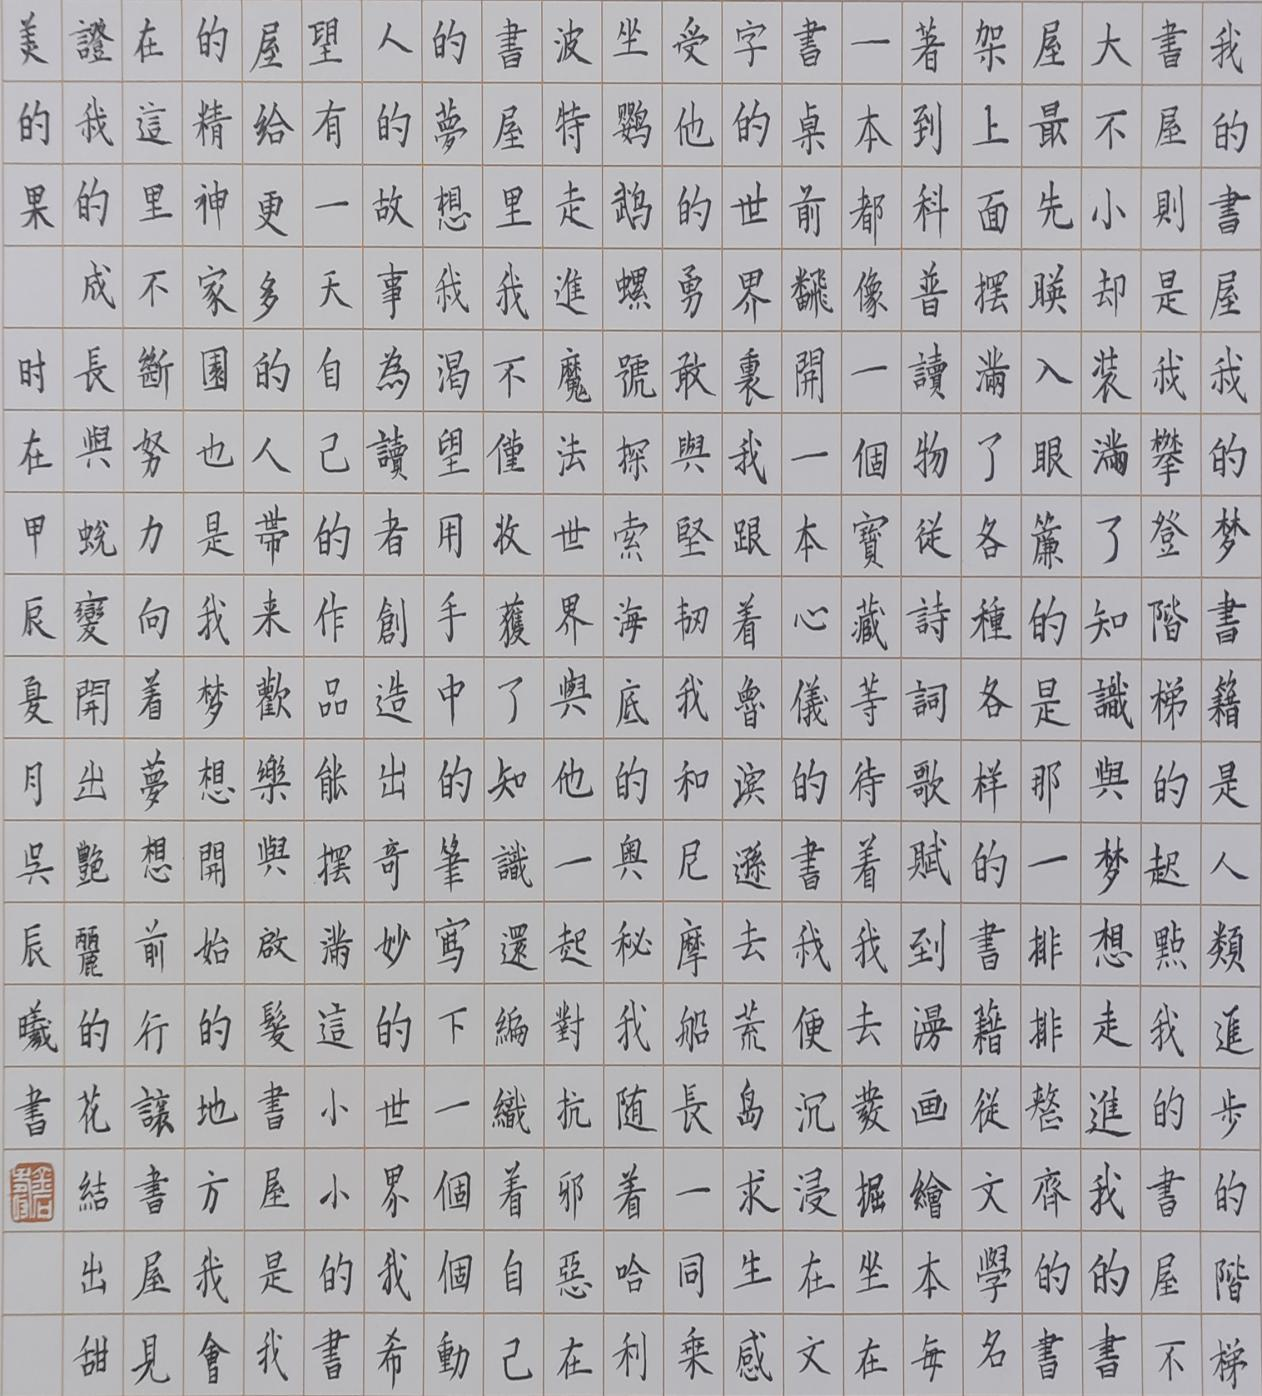 我的書屋我的梦書籍是人類進步的階梯
書屋則是我攀登階梯的起點我的書屋不
大不小却装滿了知識與梦想走進我的書
屋最先暎入眼簾的是那一排排整齊的書
架上面摆滿了各種各样的書籍從文學名
著到科普讀物從詩詞歌賦到漫画繪本每
一本都像一個寶藏等待着我去發掘坐在
書桌前飜開一本心儀的書我便沉浸在文
字的世界裏我跟着魯濱遜去荒島求生感
受他的勇敢與堅韧我和尼摩船長一同乗
坐鹦鹉螺號探索海底的奥秘我随着哈利
波特走進魔法世界與他一起對抗邪惡在
書屋里我不僅收獲了知識還編織着自己
的夢想我渴望用手中的筆寫下一個個動
人的故事為讀者創造出奇妙的世界我希
望有一天自己的作品能摆滿這小小的書
屋給更多的人帶来歡樂與啟髮書屋是我
的精神家園也是我梦想開始的地方我會
在這里不斷努力向着夢想前行讓書屋見
證我的成長與蜕變開出艶麗的花結出甜
美的果 时在甲辰夏月吳辰曦書